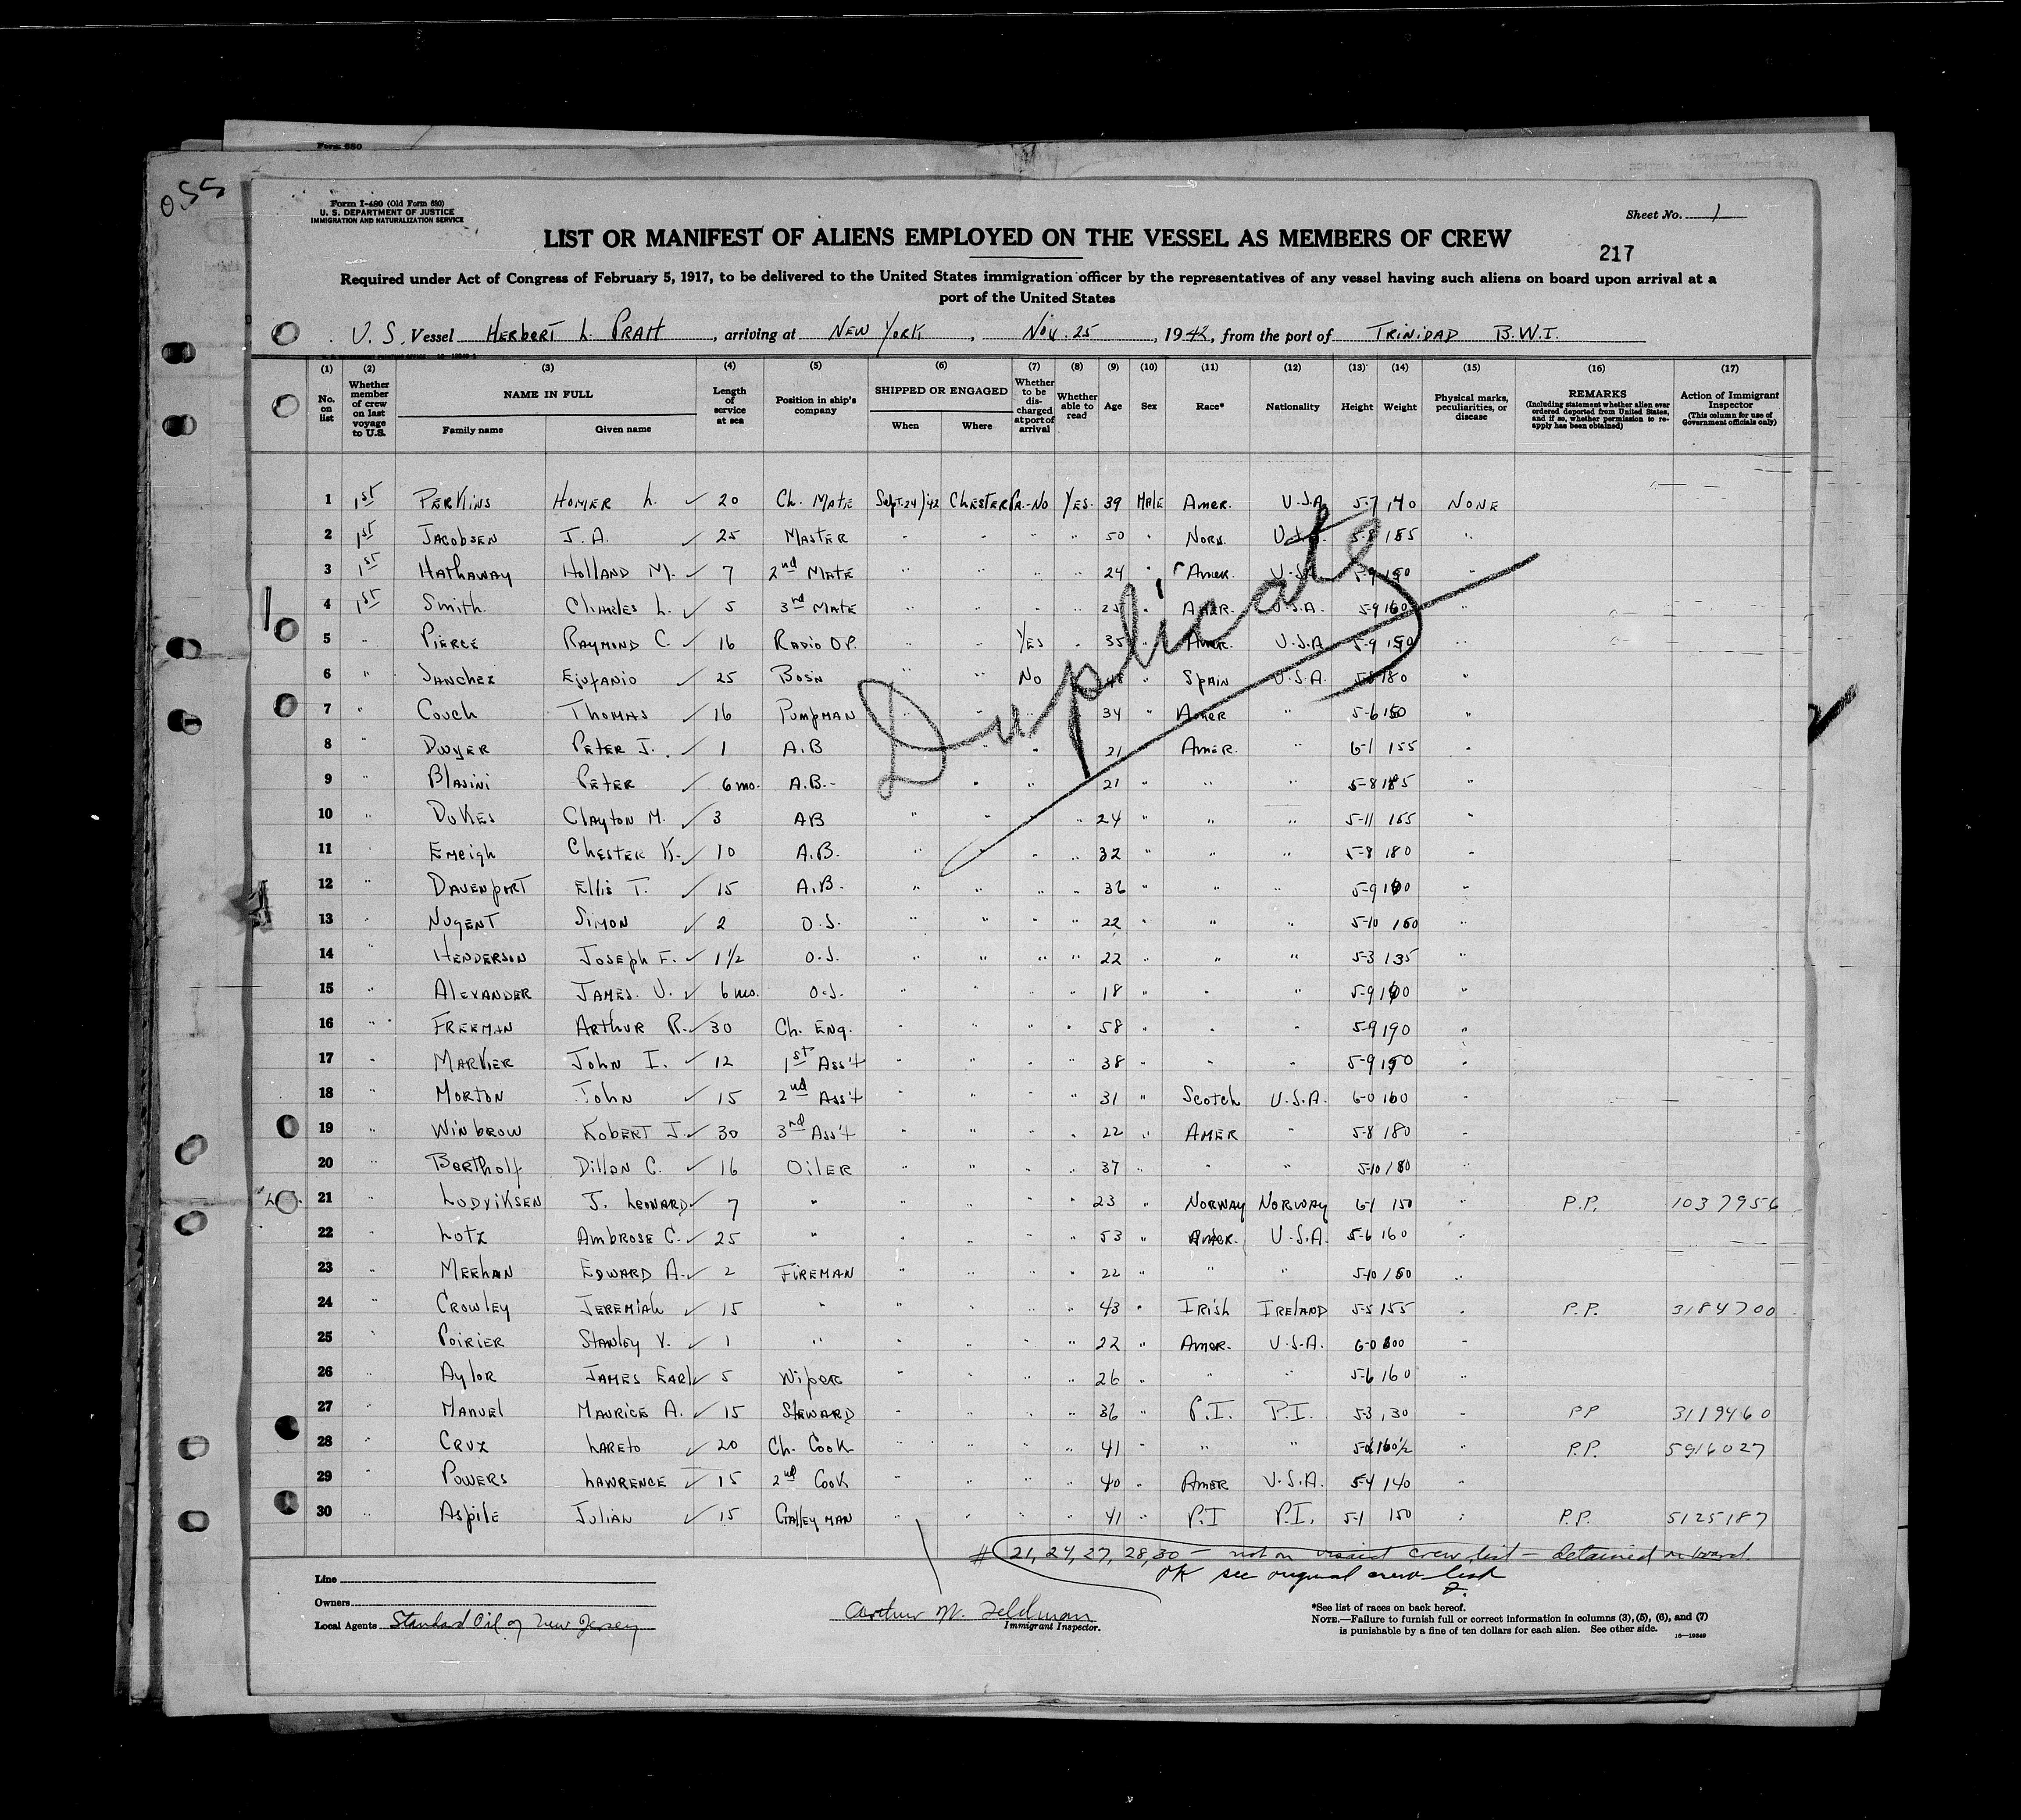 Form 680
0.55
Form I-480 (Old Form 680)
U. S. DEPARTMENT OF JUSTICE
IMMIGRATION AND NATURALIZATION SERVICE
Sheet No. 1
LIST OR MANIFEST OF ALIENS EMPLOYED ON THE VESSEL AS MEMBERS OF CREW
217
Required under Act of Congress of February 5, 1917, to be delivered to the United States immigration officer by the representatives of any vessel having such aliens on board upon arrival at a
port of the United States
U.S. Vessel HERBERT L. PRATT, arriving at NEW YORK, Nov. 25, 1942, from the port of TRINIDAD B.W.I.
(1) No. on list (2) Whether member of crew on last voyage to U.S. (3) NAME IN FULL Family name Given name (4) Length of service at sea (5) Position in ship's company (6) SHIPPED OR ENGAGED When Where (7) Whether to be discharged at port of arrival (8) Whether able to read (9) Age (10) Sex (11) Race* (12) Nationality (13) Height (14) Weight (15) Physical marks, peculiarities, or disease (16) REMARKS (Including statement whether alien ever ordered deported from United States, and if so, whether permission to reapply has been obtained) (17) Action of Immigrant Inspector (This column for use of Government officials only)
1 1st PERKINS HOMER L. ✓ 20 Ch. MATE Sept. 24/'42 CHESTER PA. - NO YES. 39 MALE AMER. U.S.A. 5-7 140 NONE
2 1st JACOBSEN J.A. ✓ 25 MASTER " " " " 50 " NORW. U.S.A. 5-8 185 "
3 1st HATHAWAY HOLLAND M. ✓ 7 2nd MATE " " " " 24 " AMER. U.S.A. 5-9 "
4 1st SMITH CHARLES L. ✓ 5 3rd MATE " " " " 25 " AMER. U.S.A. 5-9 160 "
5 " PIERCE RAYMOND C. ✓ 16 RADIO OP. " " YES " 35 " AMER. U.S.A 5-9 "
6 " SANCHEZ EJUFANIO ✓ 25 BOS'N " " NO 48 " SPAIN U.S.A. 180 "
7 " COUCH THOMAS ✓ 16 PUMPMAN " " " 34 " AMER " 5-6 150 "
8 " DWYER PETER J. ✓ 1 A.B " " 21 AMER. " 6-1 155 "
9 " BLASINI PETER ✓ 6 mo. A.B. " " 21 " " " 5-8 185 "
10 " DUKES CLAYTON M. ✓ 3 AB " " " " 24 " " " 5-11 155 "
11 " EMEIGH CHESTER K. ✓ 10 A.B. " " " " 32 " " " 5-8 180 "
12 " DAVENPORT ELLIS T. ✓ 15 A.B. " " " " 36 " " " 5-9 "
13 " NUGENT SIMON ✓ 2 O.S. " " " " 22 " " " 5-10 150 "
14 " HENDERSON JOSEPH F. ✓ 1 1/2 O.S. " " " " 22 " " " 5-3 135 "
15 " ALEXANDER JAMES. V. ✓ 6 mo. O.S. " " " " 18 " " " 5-9 "
16 " FREEMAN ARTHUR R. ✓ 30 Ch. ENG. " " " " 58 " " " 5-9 190 "
17 " MARKIER JOHN I. ✓ 12 1st ASS'T " " " " 38 " " " 5-9 "
18 " MORTON JOHN ✓ 15 2nd ASS'T " " " " 31 " SCOTCH U.S.A. 6-0 160 "
19 " WINBROW ROBERT J. ✓ 30 3rd ASS'T " " " " 22 " AMER " 5-8 180 "
20 " BERTHOLF DILLON C. ✓ 16 OILER " " " " 37 " " " 5-10 180 "
21 " LUDVIKSEN J. LEONARD ✓ 7 " " " " " 23 " NORWAY NORWAY 6-1 150 " P.P. 1037956
22 " LOTZ AMBROSE C. ✓ 25 " " " " " 53 " AMER. U.S.A. 5-6 160 "
23 " MEEHAN EDWARD A. ✓ 2 FIREMAN " " " " 22 " " " 5-10 150 "
24 " CROWLEY JEREMIAH ✓ 15 " " " " " 43 " IRISH IRELAND 5-5 155 " P.P. 3184700
25 " POIRIER STANLEY V. ✓ 1 " " " " " 22 " AMER. U.S.A. 6-0 200 "
26 " AYLOR JAMES EARL ✓ 5 WIPER " " " " 26 " " " 5-6 160 "
27 " MANUEL MAURICE A. ✓ 15 STEWARD " " " " 36 " P.I. P.I. 5-3 130 " PP 3119460
28 " CRUZ LARETO ✓ 20 Ch. COOK " " " " 41 " " " " P.P. 5916027
29 " POWERS LAWRENCE ✓ 15 2nd COOK " " " " 40 " AMER U.S.A. 5-4 140 "
30 " ASPILE JULIAN ✓ 15 GALLEY MAN " " " " 41 " P.I P.I. 5-1 150 " P.P. 5125187
Duplicate
# 21, 24, 27, 28, 30 — not on visaed crew list — detained on board.
OK see original crew list
Line
Owners
Local Agents Standard Oil of New Jersey
Arthur W. Feldman
Immigrant Inspector.
*See list of races on back hereof.
NOTE.—Failure to furnish full or correct information in columns (3), (5), (6), and (7)
is punishable by a fine of ten dollars for each alien. See other side.
16—19349